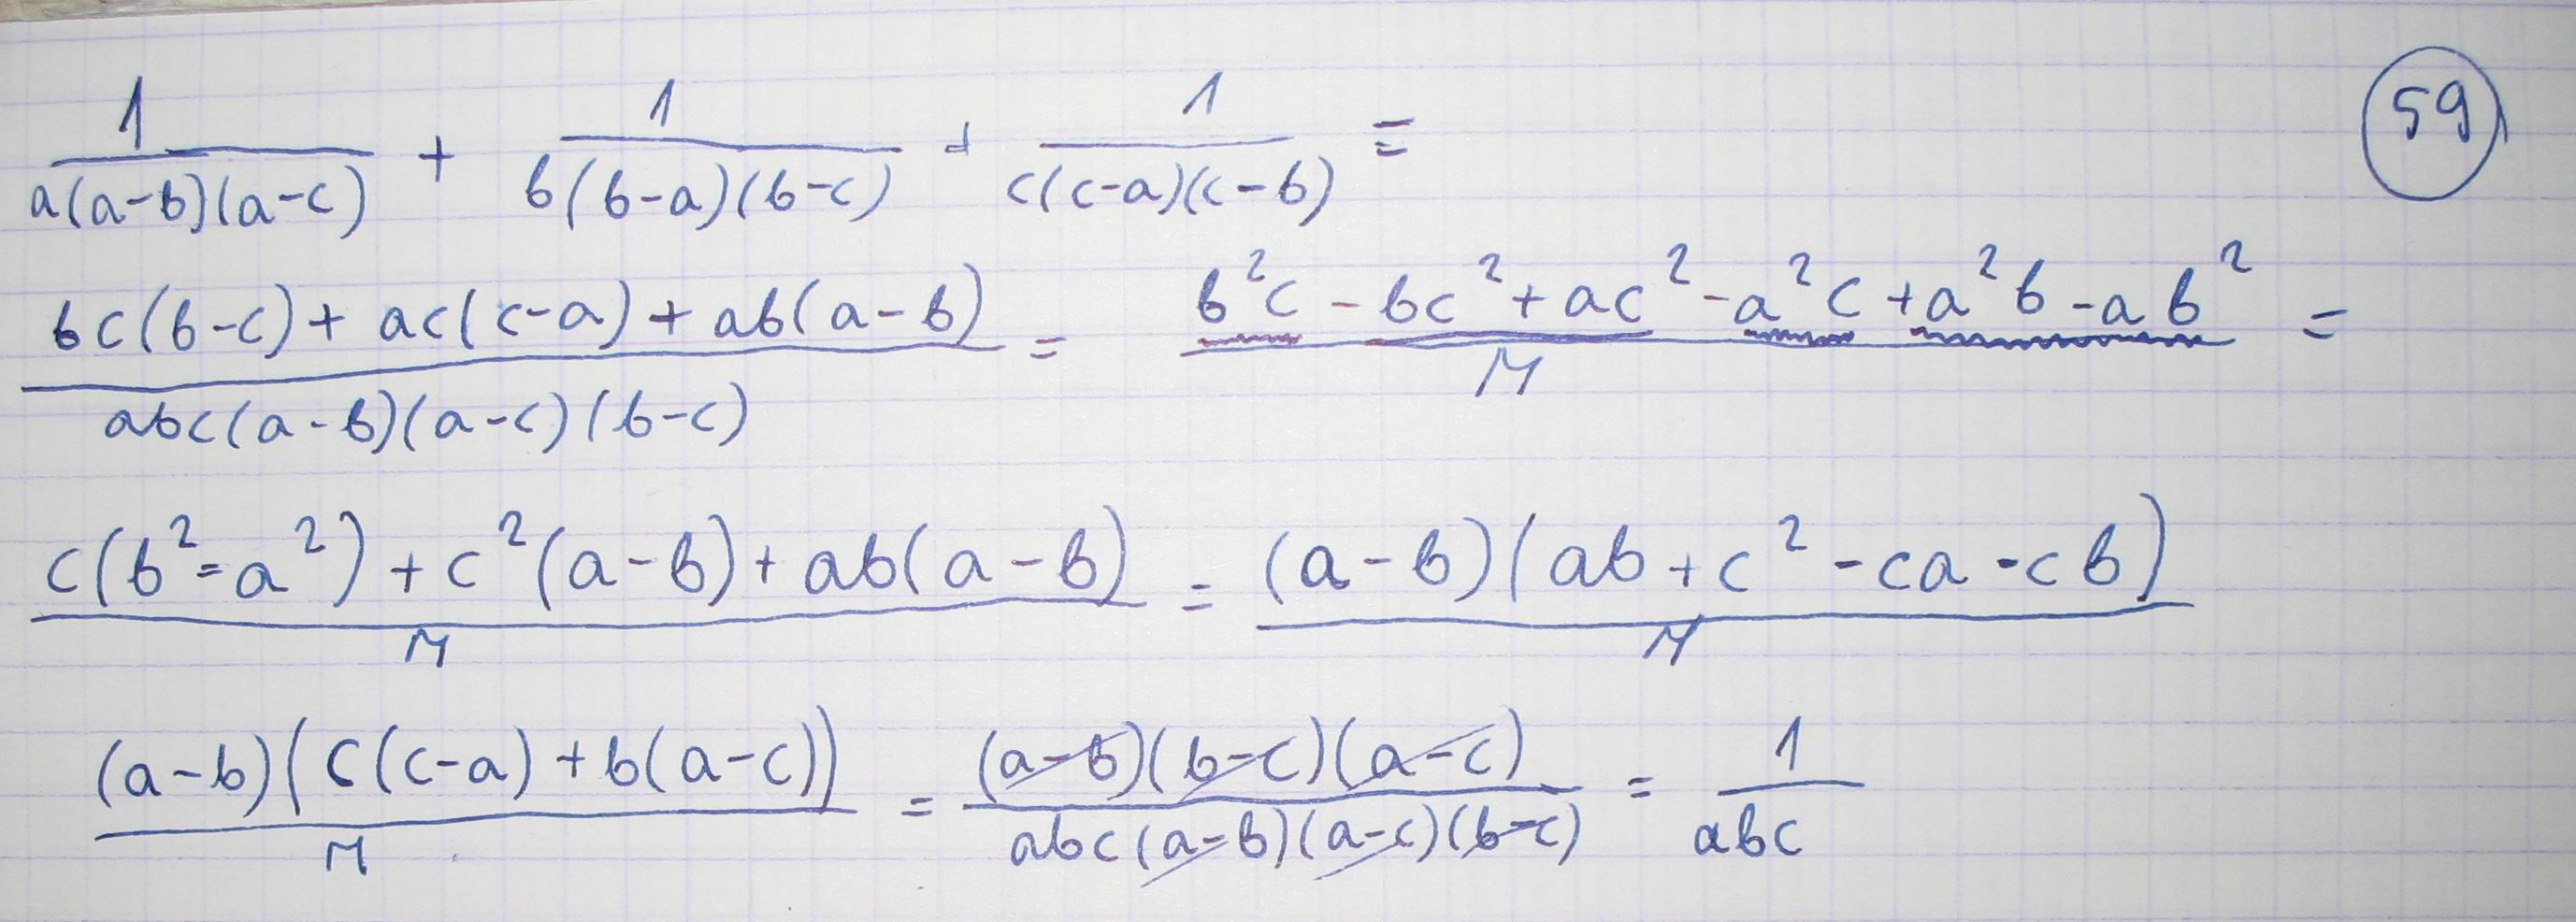 59
1/(a(a-b)(a-c)) + 1/(b(b-a)(b-c)) + 1/(c(c-a)(c-b)) =
(bc(b-c) + ac(c-a) + ab(a-b))/(abc(a-b)(a-c)(b-c)) = (b²c - bc² + ac² - a²c + a²b - ab²)/M =
(c(b² = a²) + c²(a-b) + ab(a-b))/M = ((a-b)(ab + c² - ca - cb))/M
((a-b)(c(c-a) + b(a-c)))/M = ((a-b)(b-c)(a-c))/(abc(a-b)(a-c)(b-c)) = 1/(abc)